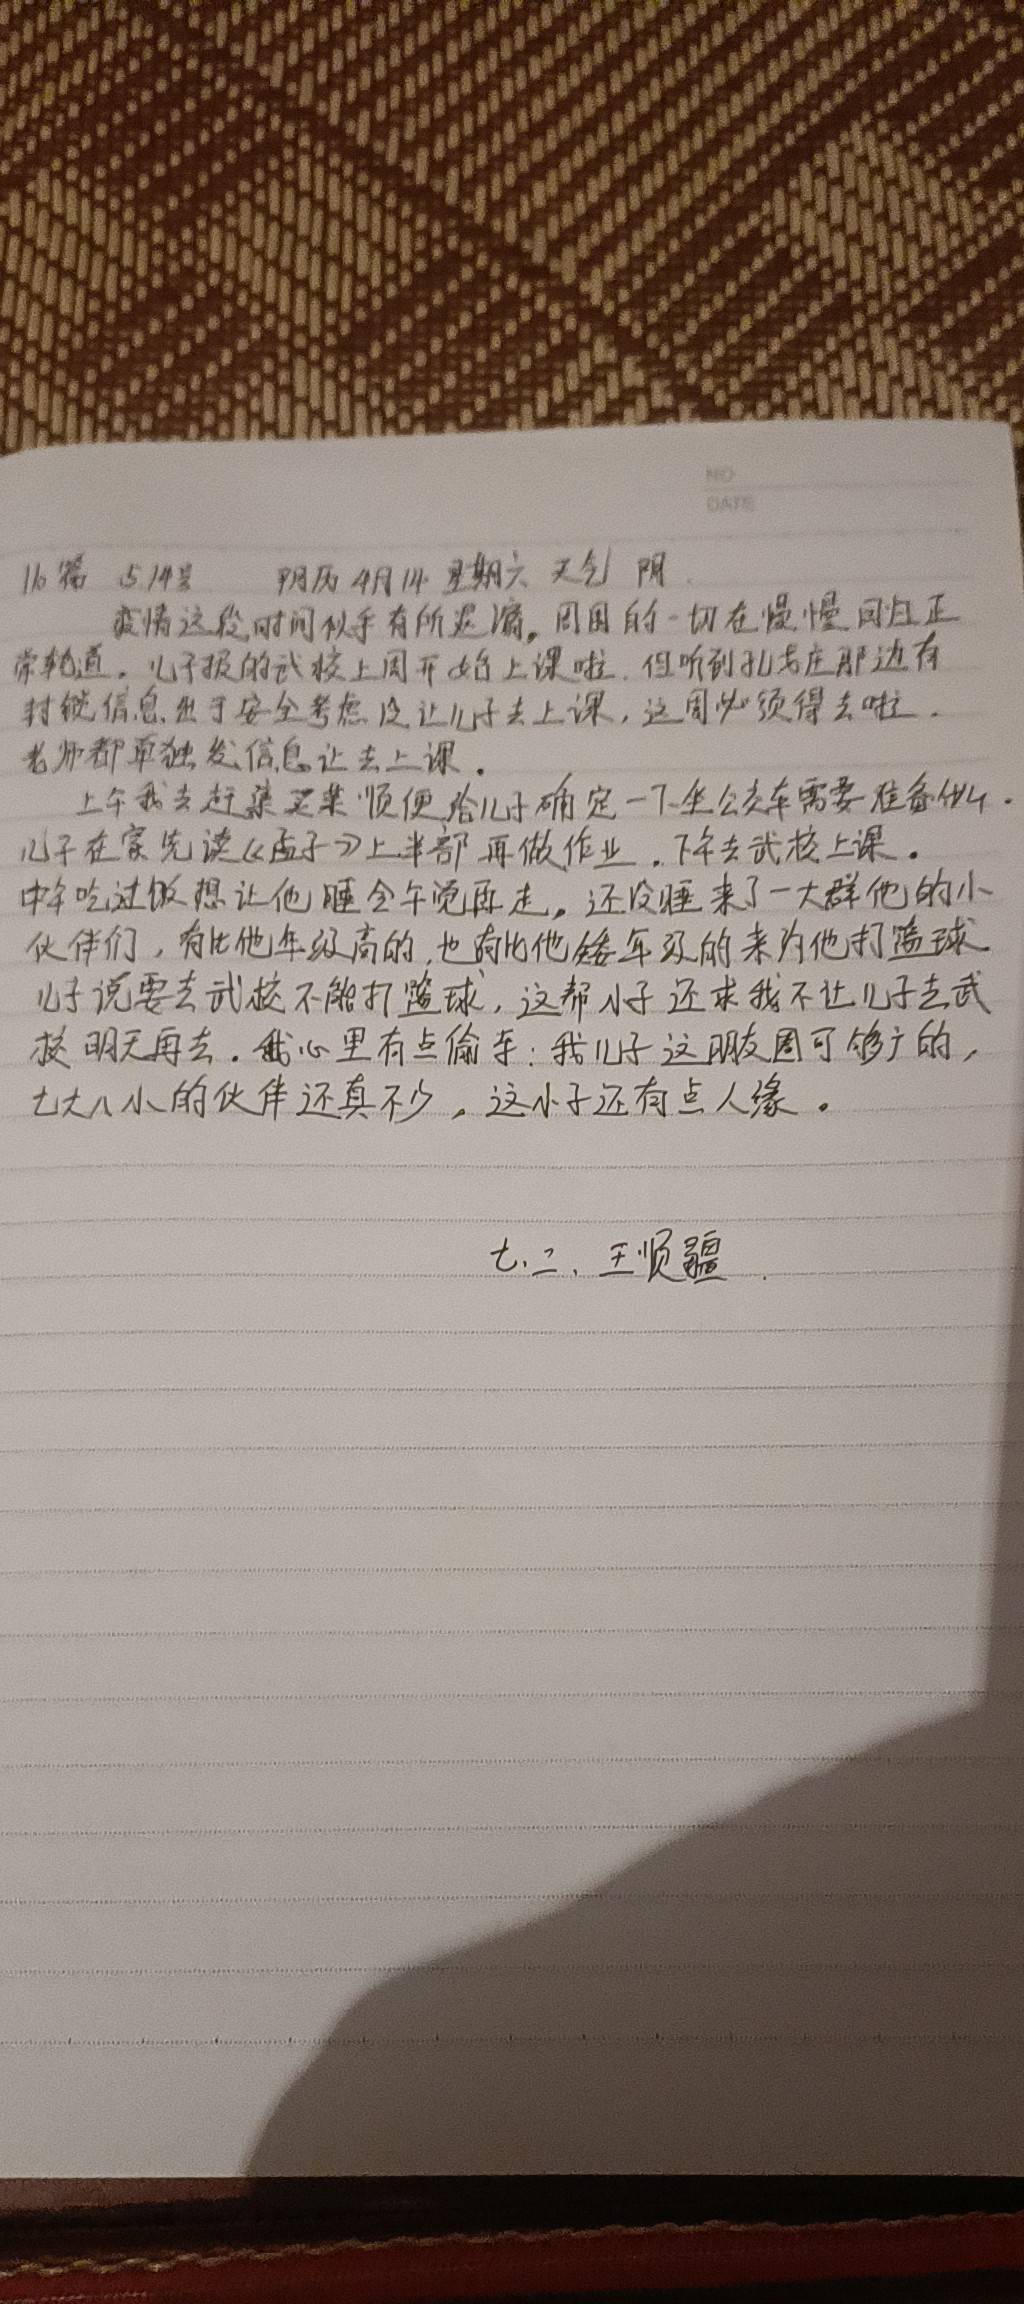 NO
DATE
16篇 5.14号 阴历4月14 星期六 天气 阴
疫情这段时间似乎有所退缩。周围的一切在慢慢回归正
常轨道。儿子报的武校上周开始上课啦.但听到孔老庄那边有
封锁信息.出于安全考虑没让儿子去上课,这周必须得去啦.
老师都单独发信息让去上课.
上午我去赶集买菜顺便给儿子确定一下坐公交车需要准备什么.
儿子在家先读《孟子》上半部再做作业.下午去武校上课.
中午吃过饭想让他睡会午觉再走。还没睡来了一大群他的小
伙伴们,有比他年级高的,也有比他矮年级的来约他打篮球
儿子说要去武校不能打篮球,这帮小子还求我不让儿子去武
校明天再去.我心里有点偷幸:我儿子这朋友圈可够广的,
七大八小的伙伴还真不少,这小子还有点人缘.
七.二.王顺疆.